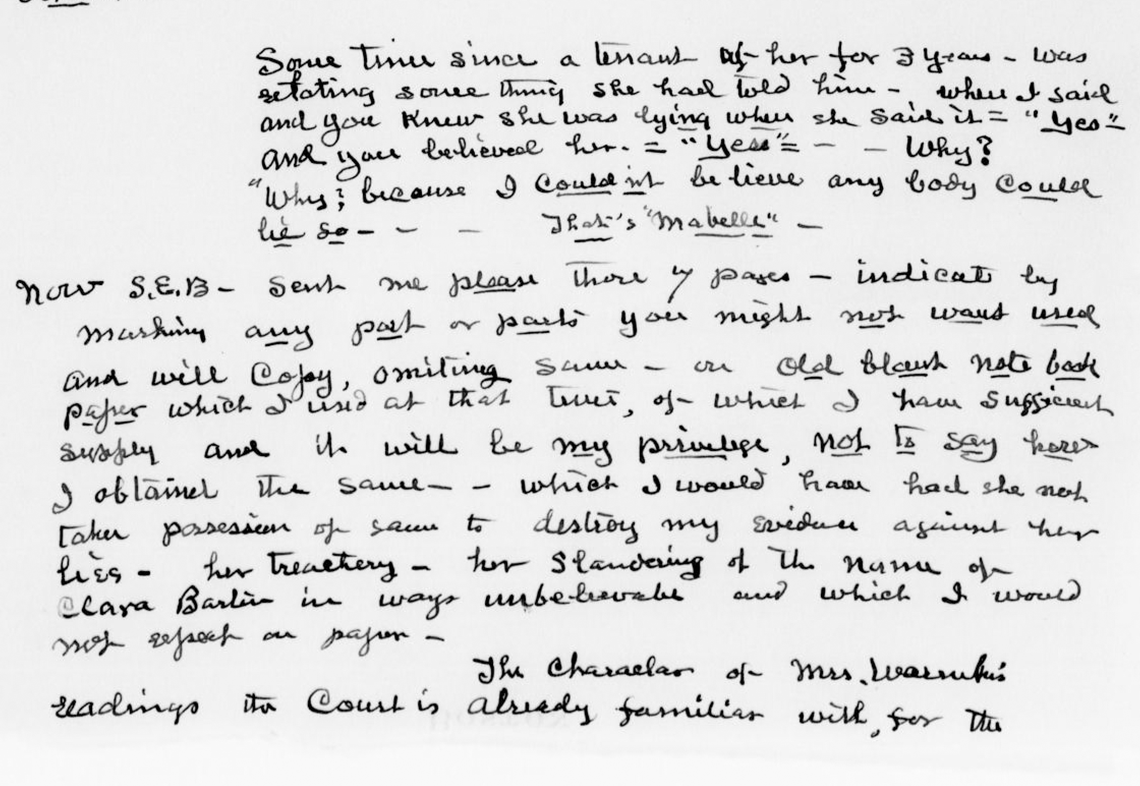 Some time since a tenant of her for 3 years - was
relating some thing she had told him - when I said
and you knew she was lying when she said it = "Yes" =
and you believed her. = "Yess" = - - Why?
"Why; because I couldn't believe any body could
lie so - - - That's "Mabelle" -
Now S.E.B - Send me please those 7 pages - indicate by
marking any part or parts you might not want used
and will Copy, omiting same - on old blank note book
paper which I used at that time, of which I have sufficient
supply and it will be my privilege, not to say how
I obtained the same - - which I would have had she not
taken possession of same to destroy my evidence against her
lies - her treachery - her slandering of the name of
Clara Barton in ways unbelievable and which I would
not repeat on paper -
The Character of Mrs.
readings the Court is already familiar with, for the